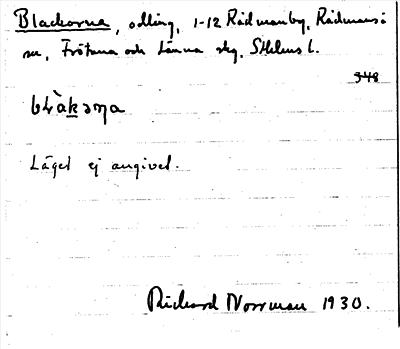 Blackorna, odling, 1-12 Rådmanby, Rådmansö
sn, Frötuna och Länna skg, Sthlms l.
348
blàkoɳa
Läget ej angivet.
Richard Norrman 1930.